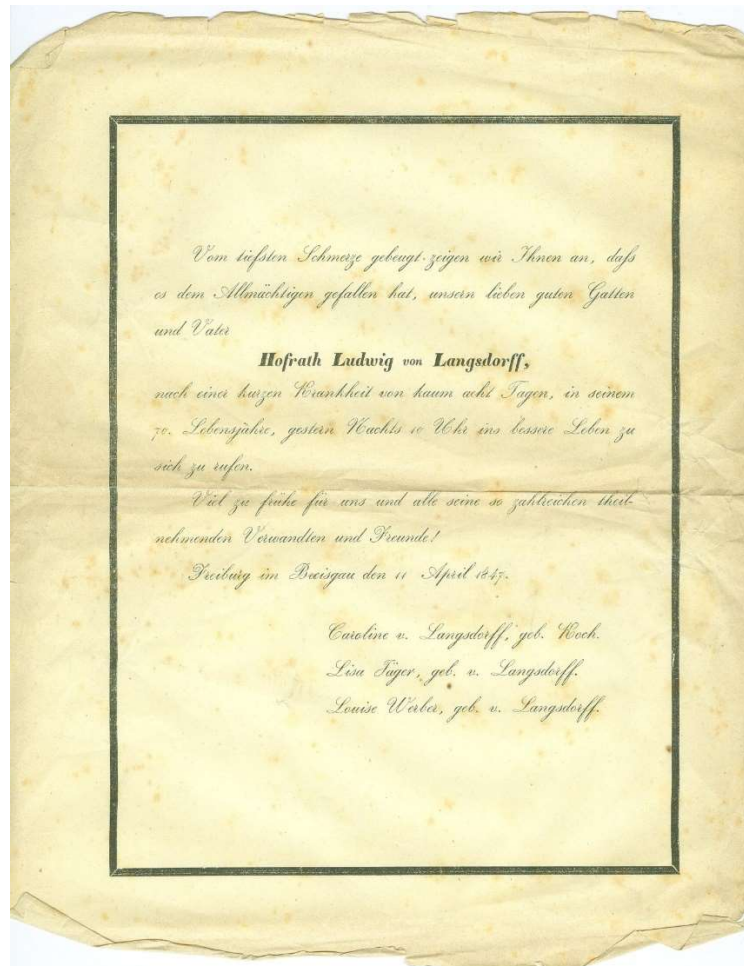 Vom tiefsten Schmerze gebeugt zeigen wir Ihnen an, daß
es dem Allmächtigen gefallen hat, unsern lieben guten Gatten
und Vater
Hofrath Ludwig von Langsdorff,
nach einer kurzen Krankheit von kaum acht Tagen, in seinem
70. Lebensjahre, gestern Nachts 10 Uhr ins bessere Leben zu
sich zu rufen.
Viel zu frühe für uns und alle seine so zahlreichen theil-
nehmenden Verwandten und Freunde!
Freiburg im Breisgau den 11 April 1847.
Caroline v. Langsdorff, geb. Koch.
Lisa Jäger, geb. v. Langsdorff.
Louise Werber, geb. v. Langsdorff.